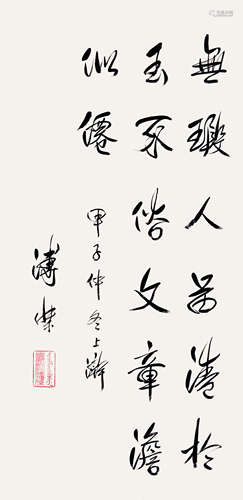 無瑕人品清於
玉不俗文章澹
似僊
甲子仲冬上澣
溥傑